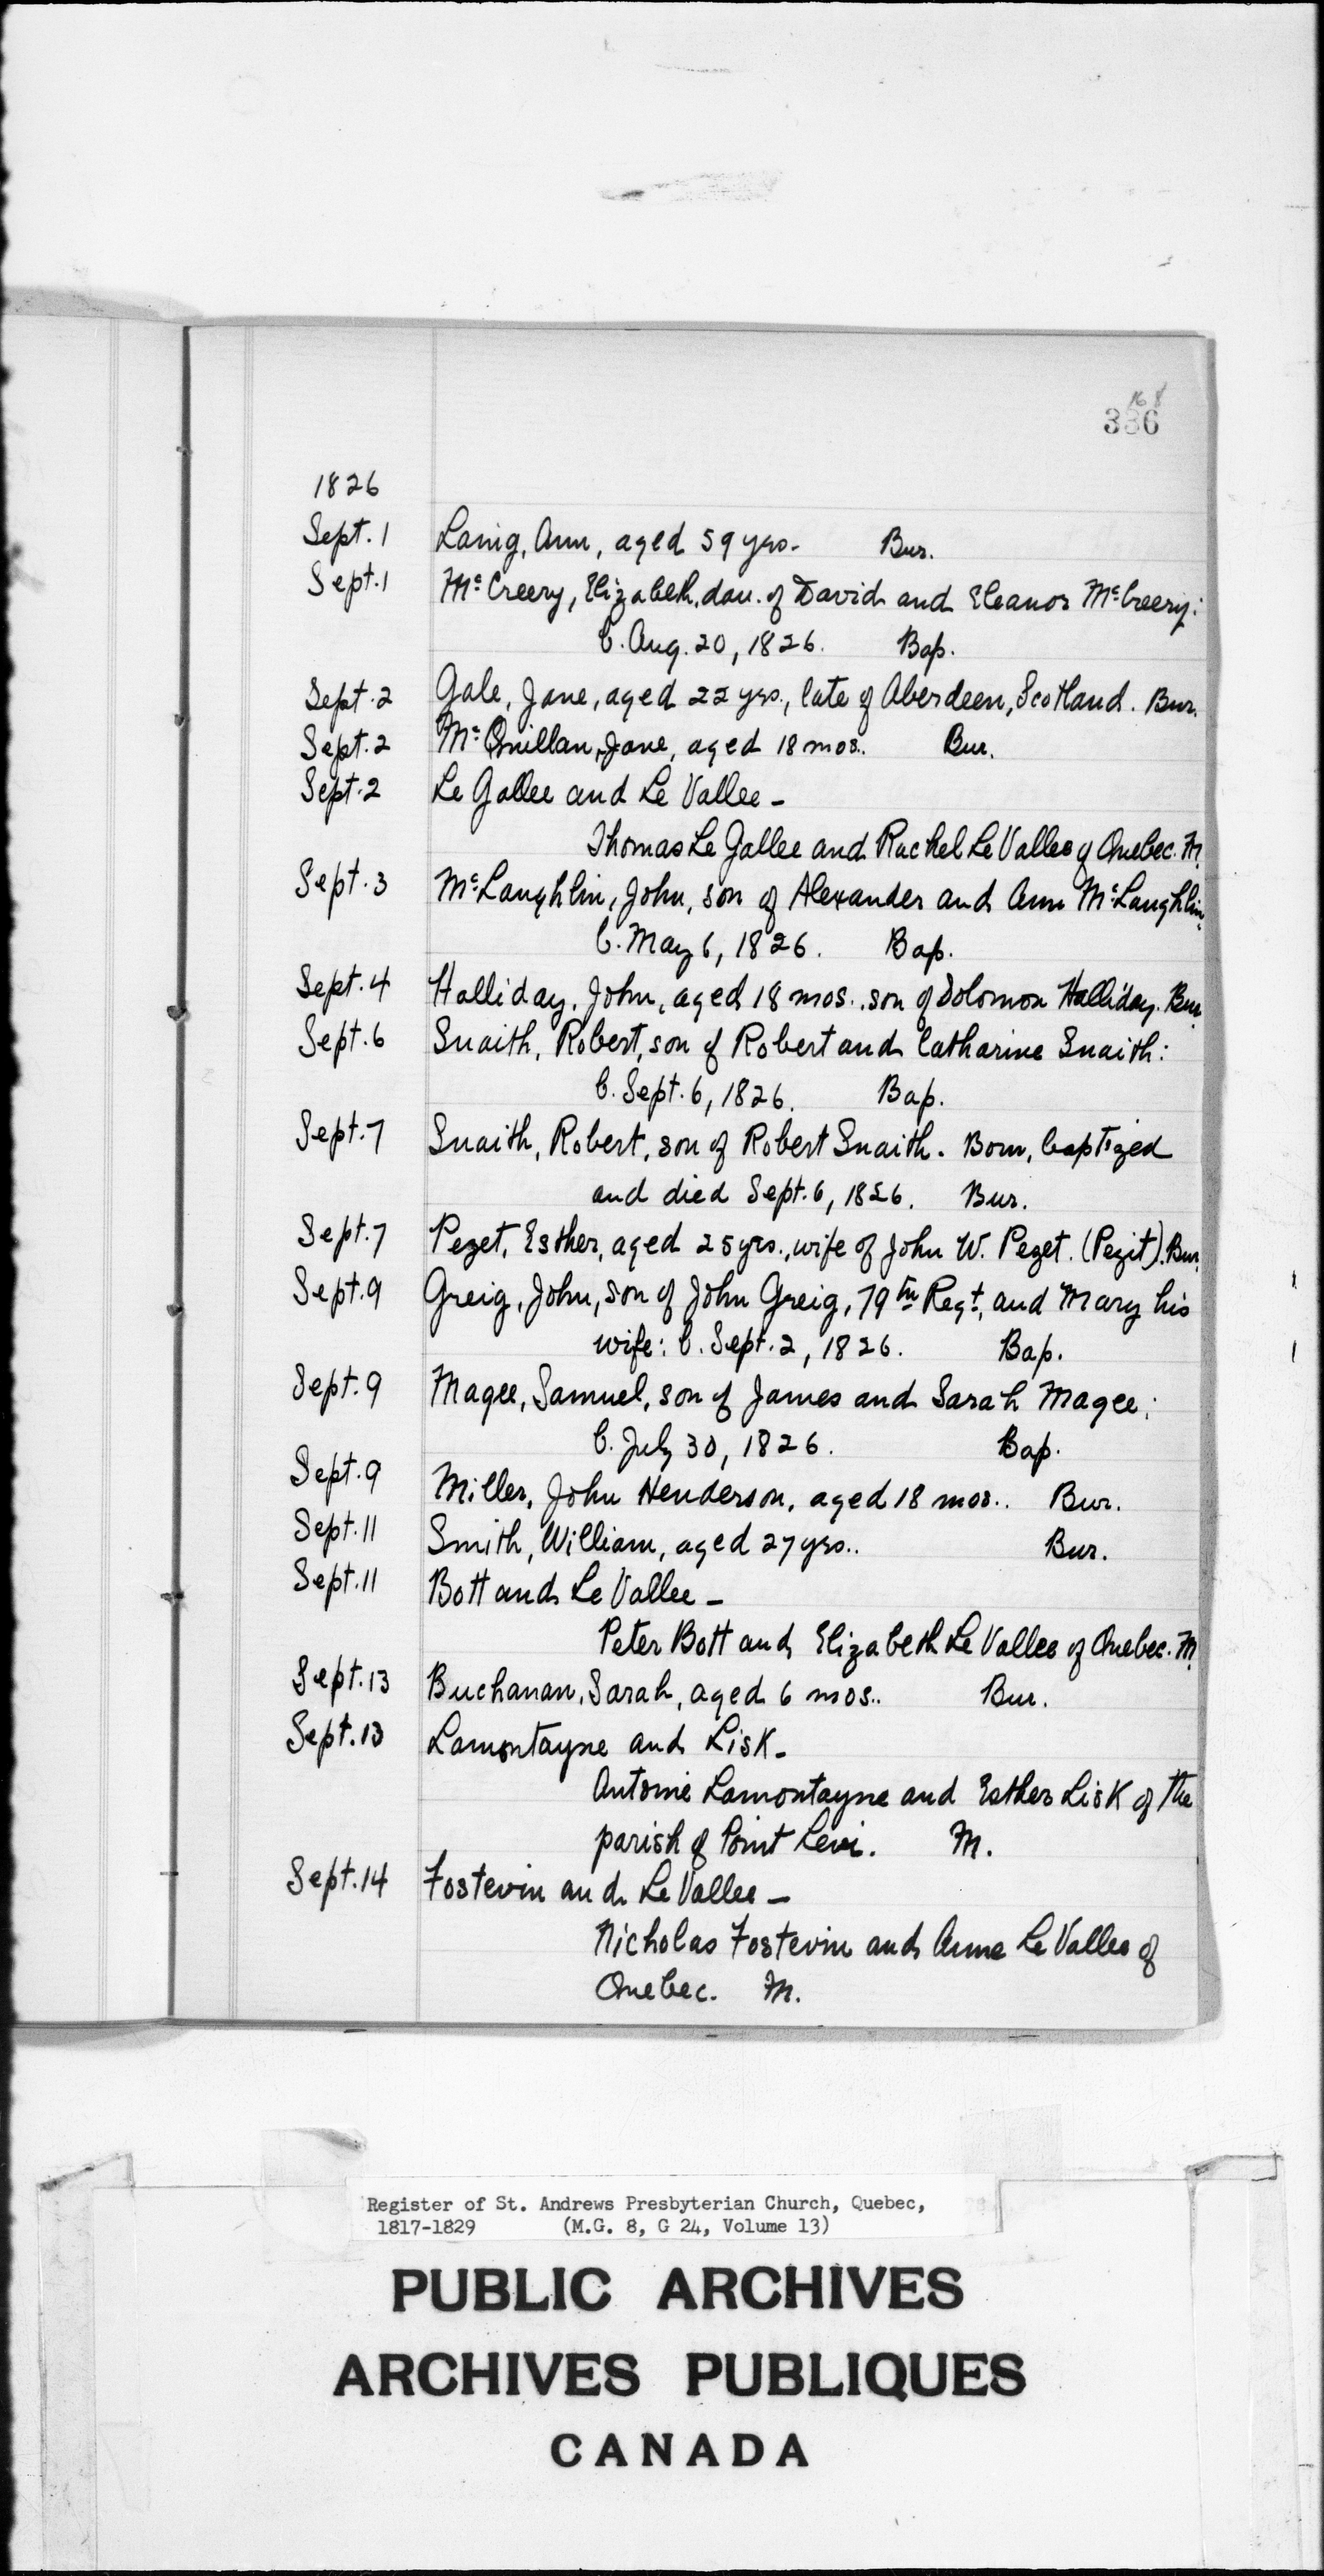 168
336
1826
Sept. 1 Laing, Ann, aged 59 yrs. Bur.
Sept. 1 McCreery, Elizabeth, dau. of David and Eleanor McCreery:
b. Aug. 20, 1826. Bap.
Sept. 2 Gale, Jane, aged 22 yrs., late of Aberdeen, Scotland. Bur.
Sept. 2 McQuillan, Jane, aged 18 mos.. Bur.
Sept. 2 Le Gallee and Le Vallee -
Thomas Le Gallee and Rachel Le Vallee of Quebec. M.
Sept. 3 McLaughlin, John, son of Alexander and Ann McLaughlin:
b. May 6, 1826. Bap.
Sept. 4 Halliday, John, aged 18 mos., son of Solomon Halliday. Bur.
Sept. 6 Snaith, Robert, son of Robert and Catharine Snaith:
b. Sept. 6, 1826. Bap.
Sept. 7 Snaith, Robert, son of Robert Snaith. Born, baptized
and died Sept. 6, 1826. Bur.
Sept. 7 Pezet, Esther, aged 25 yrs., wife of John W. Pezet. (Pezit). Bur.
Sept. 9 Greig, John, son of John Greig, 79th Regt, and Mary his
wife: b. Sept. 2, 1826. Bap.
Sept. 9 Magee, Samuel, son of James and Sarah Magee:
b. July 30, 1826. Bap.
Sept. 9 Miller, John Henderson, aged 18 mos.. Bur.
Sept. 11 Smith, William, aged 27 yrs.. Bur.
Sept. 11 Bott and Le Vallee -
Peter Bott and Elizabeth Le Vallee of Quebec. M.
Sept. 13 Buchanan, Sarah, aged 6 mos.. Bur.
Sept. 13 Lamontayne and Lisk -
Antoine Lamontayne and Esther Lisk of the
parish of Point Levi. M.
Sept. 14 Fostevin and Le Vallee -
Nicholas Fostevin and Anne Le Vallee of
Quebec. M.
Register of St. Andrews Presbyterian Church, Quebec,
1817-1829 (M.G. 8, G 24, Volume 13)
PUBLIC ARCHIVES
ARCHIVES PUBLIQUES
CANADA